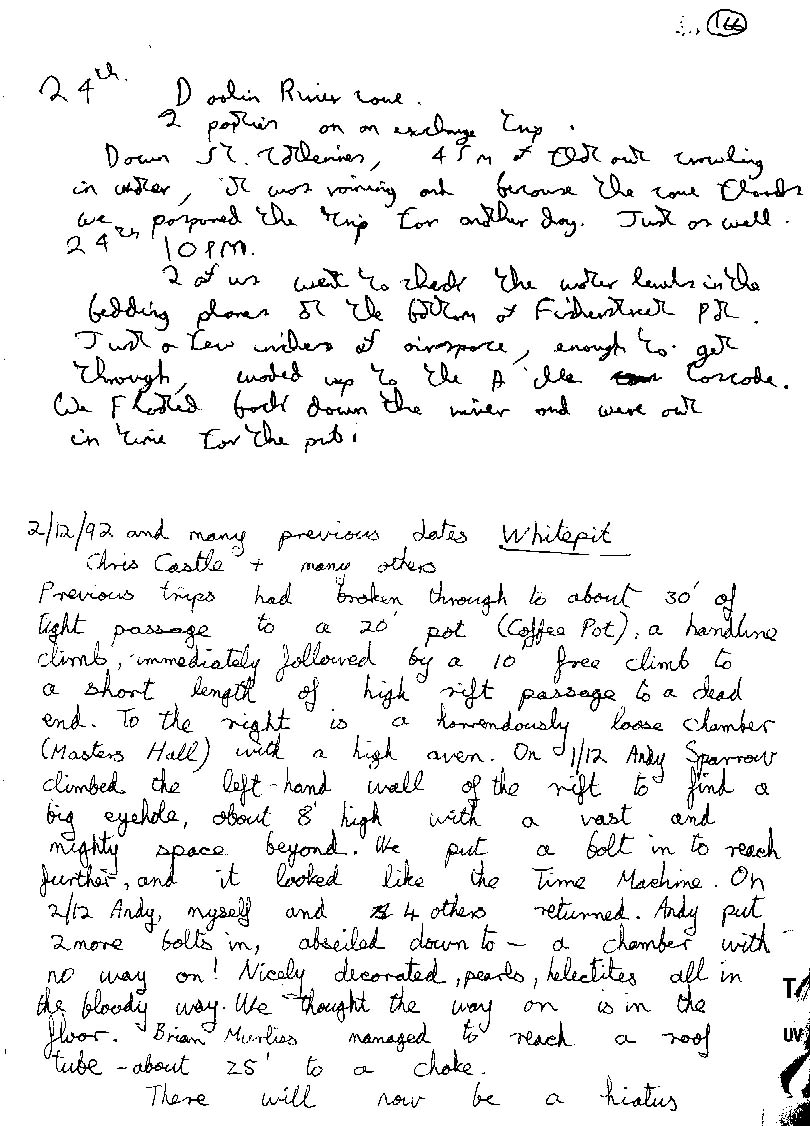 166
24th. Doolin River cave.
2 parties on an exchange trip.
Down St. Catherines, 45m of flat out crawling
in water, it was raining and because the cave floods
we posponed the trip for another day. Just as well.
24th 10PM.
2 of us went to check the water levels in the
bedding planes at the bottom of Fisherstreet Pot.
Just a few inches of airspace, enough to get
through, waded up to the Aille Cascade.
We floated back down the river and were out
in time for the pub!
2/12/92 and many previous dates Whitepit
Chris Castle + many others
Previous trips had broken through to about 30' of
tight passage to a 20' pot (Coffee Pot), a handline
climb, immediately followed by a 10' free climb to
a short length of high rift passage to a dead
end. To the right is a horrendously loose chamber
(Masters Hall) with a high aven. On 1/12 Andy Sparrow
climbed the left-hand wall of the rift to find a
big eyehole, about 8' high with a vast and
mighty space beyond. We put a bolt in to reach
further, and it looked like the Time Machine. On
2/12 Andy, myself and 4 others returned. Andy put
2 more bolts in, abseiled down to - a chamber with
no way on! Nicely decorated, pearls, helectites all in
the bloody way. We thought the way on is in the
floor. Brian Murlis managed to reach a roof
tube - about 25' to a choke.
There will now be a hiatus
UV